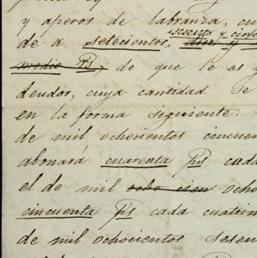 y aperos de labranza, cu
sesenta y cinco
de a setecientos,
medio ps, de que le as y
deudor, cuya cantidad se
en la forma siguiente:
de mil ochocientos cincuen
abonará cuarenta ps cada
el de mil ocho cien ocho
cincuenta ps cada cuatrim
de mil ochocientos sesen